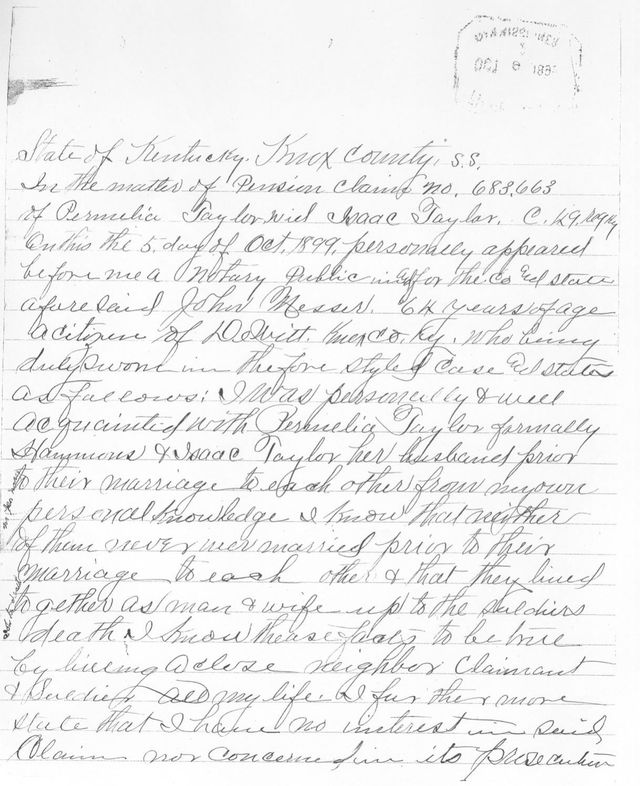 OCT 9 1899
State of Kentucky. Knox County, S.S.
In the matter of Pension Claim No. 683,663
of Permelia Taylor wid Isaac Taylor. C. 49. Reg Ky
On this the 5. day of Oct. 1899, personally appeared
before me a Notary Public in & for the Co & state
aforesaid John Messer. 64 years of age
a citizen of DeWitt. Knox Co. Ky. who being
duly sworn in the fore styled case & states
as follows: I was personally & well
acquainted with Permelia Taylor formally
Hammons & Isaac Taylor her husband prior
to their marriage to each other from my own
personal knowledge I know that neyther
of them never wer married prior to their
marriage to each other & that they lived
together as man & wife up to the soldiers
death I know thease facts to be true
by liveing a close neighbor Claimant
& Soldier all my life. I further more
state that I have no interest in said
Claim nor concerned in its prosecution